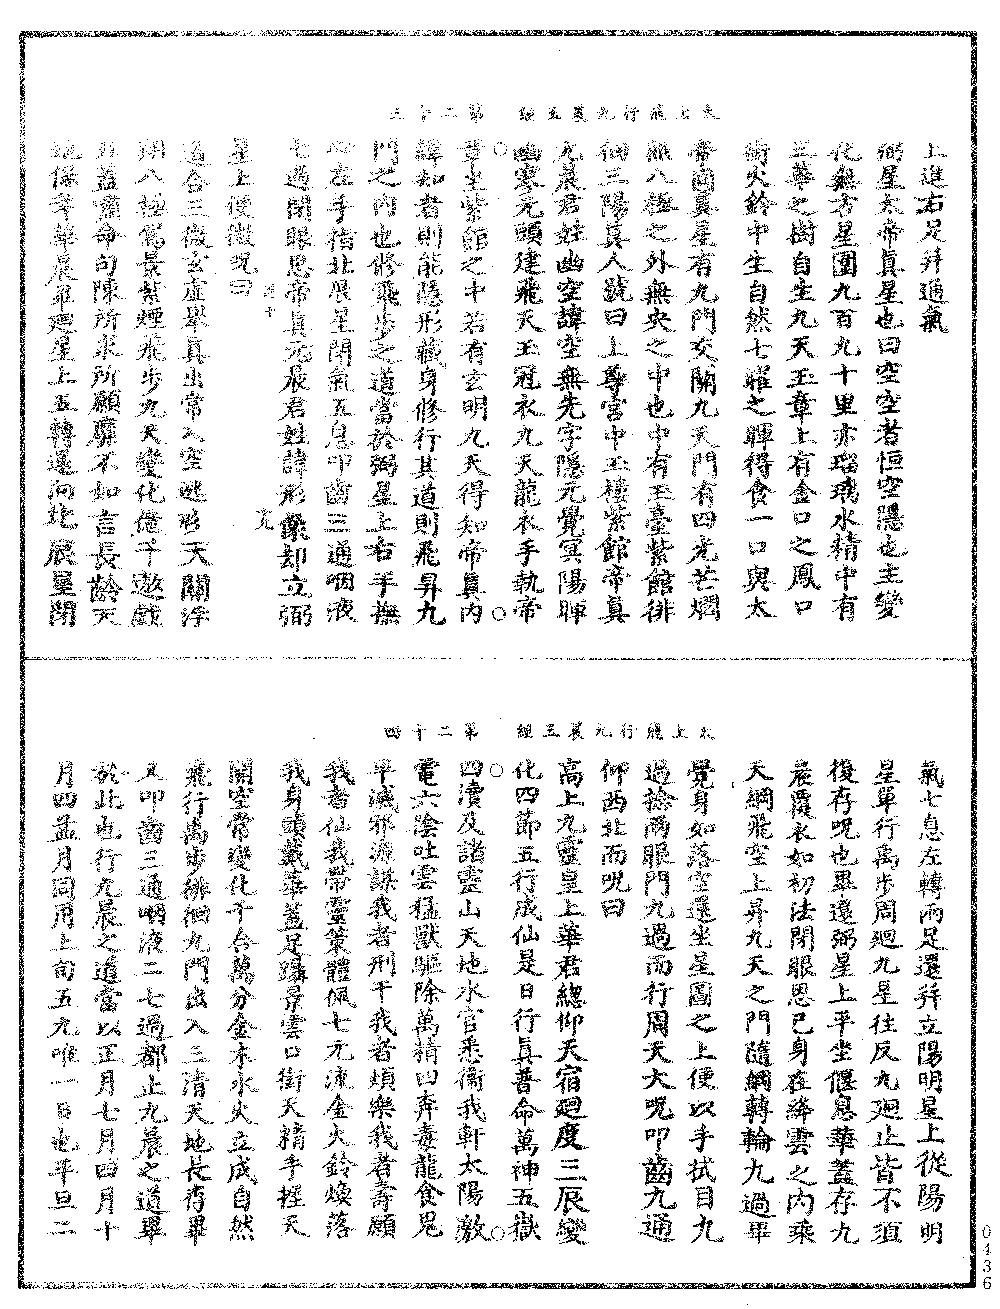 太上飛行九晨玉經　第二十三
上進右足并通氣
弼星太帝真星也曰空空者恒空隱也主變
化無方星圍九百九十里亦瑠璃水精中有
三華之樹自生九天玉章上有金口之鳳口
銜火鈴中生自然七曜之暉得食一口與太
帝同真星有九門交關九天門有四光芒燭
照八極之外無央之中也中有玉臺紫館徘
徊三陽真人號曰上尊宮中玉樓紫館帝真
元晨君姓幽空諱空無先字隱元覺冥陽暉
幽寥元頭建飛天玉冠衣九天龍衣手執帝
章坐紫館之中若有玄明九天得知帝真內
諱知者則能隱形藏身修行其道則飛昇九
門之內也修飛步之道當於弼星上右手撫
心左手指北晨星閉氣五息叩齒三通咽液
七過閉眼思帝真元晨君姓諱形像却立弼
星上便微呪曰
過合三微玄虛舉真出常入空逃形天關浮
翔八極駕景紫煙飛步九天變化億千遨戲
華蓋肅命句陳所求所願靡不如言長齡天
地保年華晨畢廻星上五轉還向北晨星閉
太上飛行九晨玉經　第二十四
氣七息左轉兩足還并立陽明星上從陽明
星單行禹步周廻九星往反九廻止皆不須
復存呪也畢還弼星上平坐偃息華蓋存九
晨覆衣如初法閉眼思己身在絳雲之內乘
天綱飛空上昇九天之門隨綱轉輪九過畢
覺身如落空還坐星圖之上便以手拭目九
過捻兩眼門九過而行周天大呪叩齒九通
仰西北而呪曰
高上九靈皇上華君總仰天宿廻度三辰變
化四節五行成仙是日行真普命萬神五嶽
四瀆及諸靈山天地水官悉衛我軒太陽激
電六陰吐雲猛獸驅除萬精四奔毒龍食鬼
平滅邪源謀我者刑干我者煩樂我者壽願
我者仙我帶靈策體佩七元流金火鈴煥落
我身頭戴華蓋足躡景雲口銜天精手握天
關空常變化千合萬分金木水火立成自然
飛行禹步徘徊九門出入三清天地長存畢
又叩齒三通咽液二七過都止九晨之道畢
於此也行九晨之道當以正月七月四月十
月四孟月同用上旬五九唯一日也平旦二
0436